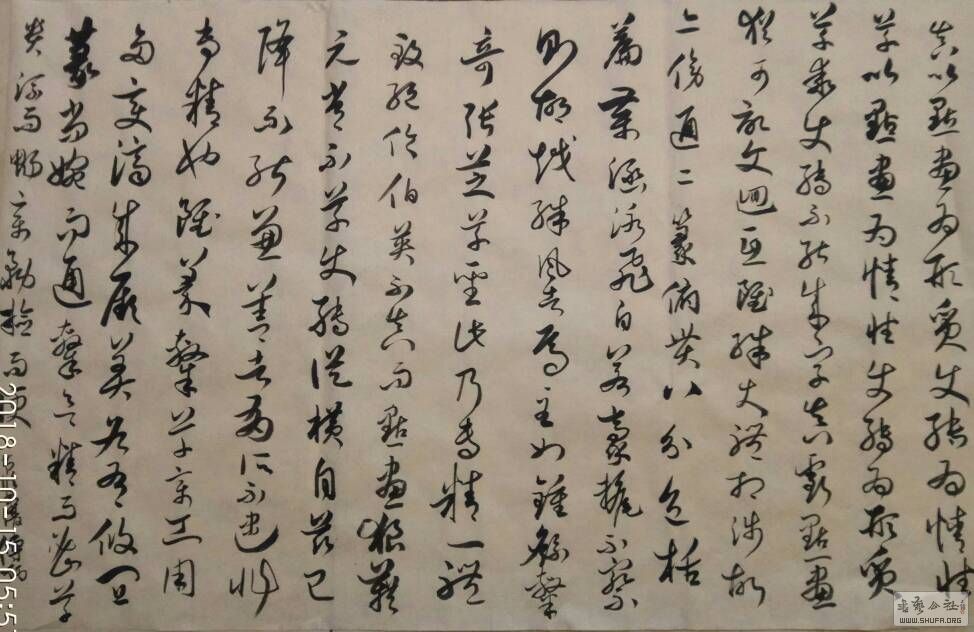 真以點畫為形質使轉為情性
草以點畫為情性使轉為形質
草乖使轉不能成字真虧點畫
猶可記文迴互雖殊大體相涉故
亦傍通二篆俯貫八分包括
篇章涵泳飛白若毫釐不察
則胡越殊風者焉至如鍾繇隸
奇張芝草聖此乃專精一體
致絕倫伯英不真而點畫狼藉
元常不草使轉縱橫自茲已
降不能兼善者有所不逮非
專精也雖篆隸草章工用
多變濟成厥美各有攸宜
篆尚婉而通隸欲精而密草
貴流而暢章務檢而便
2018-10-15 05:5
WWW.SHUFA.ORG